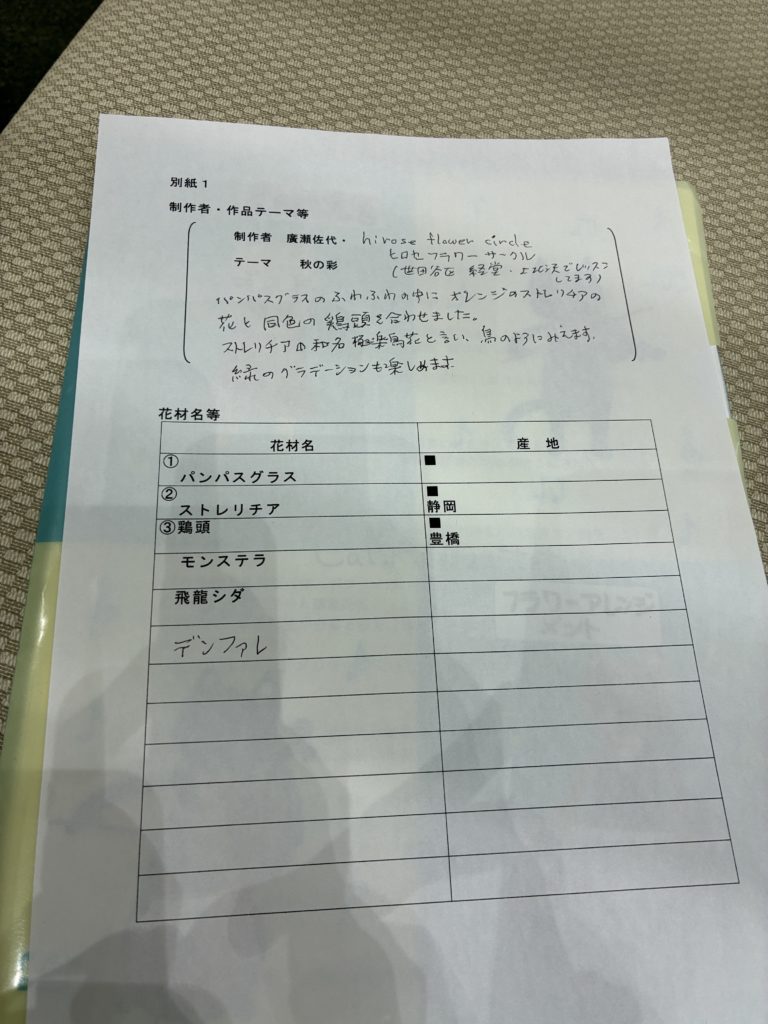 別紙1
制作者・作品テーマ等
制作者 廣瀬佐代・ hirose flower circle
ヒロセフラワーサークル
テーマ 秋の彩 (世田谷区 経堂・でレッスン
してます)
パンパスグラスのふわふわの中に オレンジのストレリチアの
花と同色の鶏頭を合わせました。
ストレリチアの和名 極楽鳥花と言い、鳥のようにみえます。
緑のグラデーションも楽しめます
花材名等
花材名 産 地
① ■
パンパスグラス
② ■
ストレリチア 静岡
③鶏頭 ■
豊橋
モンステラ
飛龍シダ
デンファレ
フラワーアレンジ
メント